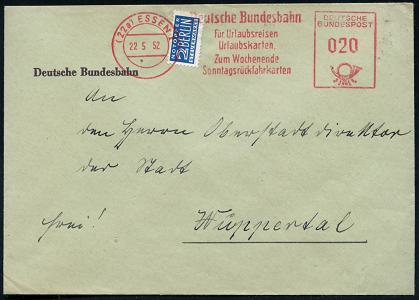 (22a) ESSEN
22.5.52
NOTOPFER
2 BERLIN
STEUERMARKE
Deutsche Bundesbahn
Für Urlaubsreisen
Urlaubskarten,
Zum Wochenende
Sonntagsrückfahrkarten
DEUTSCHE
BUNDESPOST
020
Deutsche Bundesbahn
An
den Herrn Oberstadtdirektor
der Stadt
frei!
Wuppertal